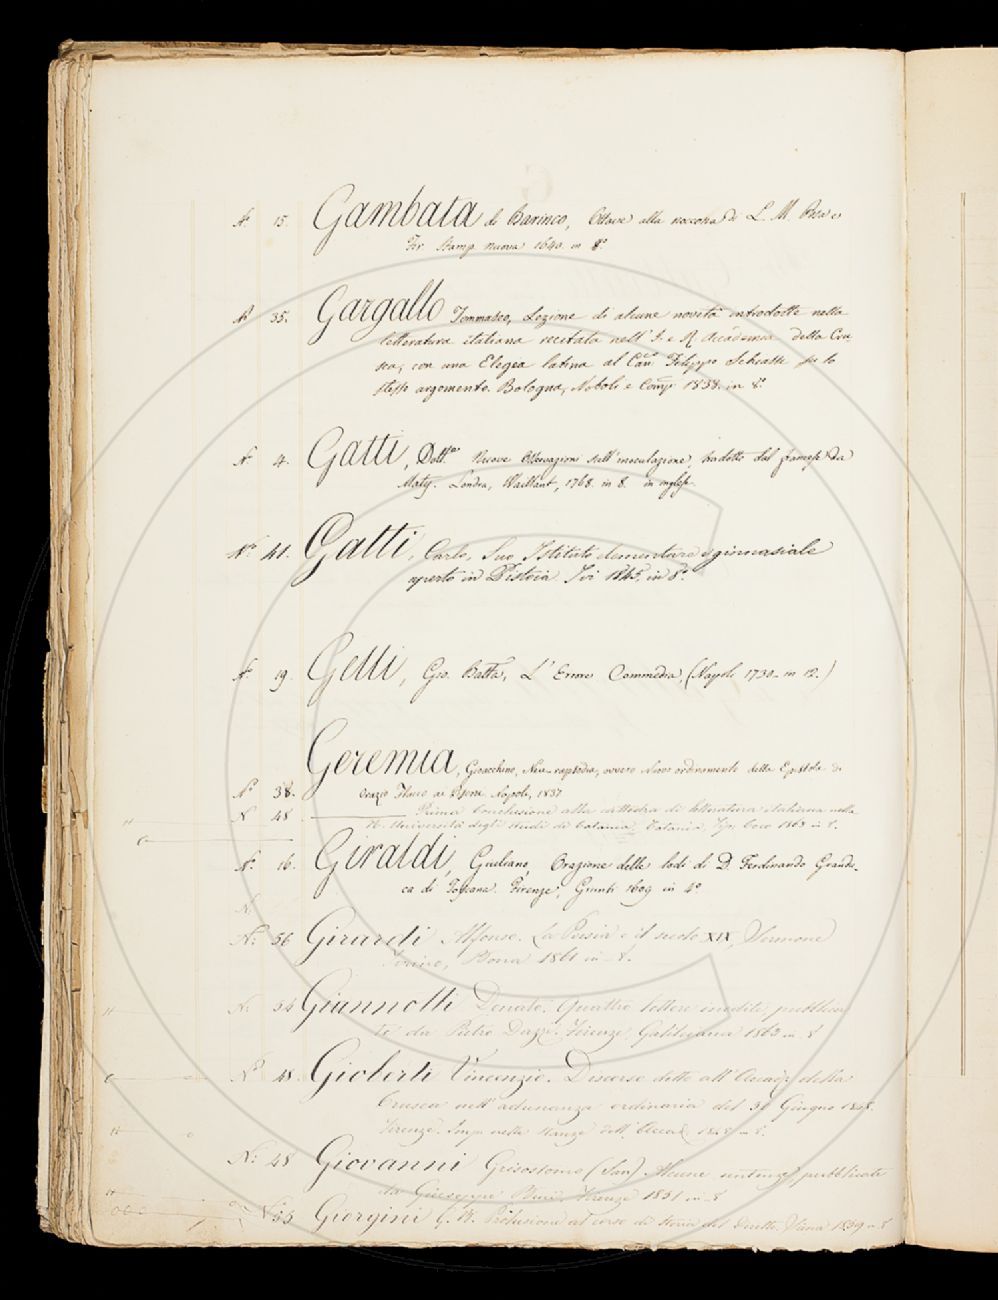 N. 15. Gambata di Barinco, Ottave alla raccolta di L. M.
Fir. Stamp. nuova 1640. in 8.º
N. 35. Gargallo Tommaso, Lezione di alcune novità introdotte nella
letteratura italiana recitata nell' I. e R. Accademia della Cru
sca, con una Elegia latina al Can.co Filippo Schiassi su lo
stesso argomento. Bologna, Nobili e Comp. 1838. in 8.º
N. 4. Gatti, Dott.re Nuove Osservazioni sull'inoculazione, tradotte dal francese da
Maty. Londra, Vaillant, 1768. in 8. in inglese.
N.º 41. Gatti, Carlo, Suo Istituto elementare e ginnasiale
aperto in Pistoia. Ivi 1845. in 8.º
N. 19. Gelli, Gio. Batta, L'Errore Commedia, (Napoli 1730. in 12.)
N.º 38. Geremia, Gioacchino, Neo-rapsodia, ovvero Nuovo ordinamento della Epistola di
Orazio Flacco ai Pisoni. Napoli, 1837
N. 48 Prima Conclusione alla cattedra di letteratura italiana nella
R. Università degli studi di Catania. Catania, Tip. 1863 in 8.
N. 16. Giraldi, Giuliano, Orazione delle lodi di D. Ferdinando Grandu-
ca di Toscana. Firenze, Giunti 1609 in 4.º
N.
N. 56 Girardi Alfonso. La Poesia e il secolo XIX, Sermone
Torino, Bona 1861 in 8.
N. 54 Giannotti Donato. Quattro lettere inedite, pubblica
te da Pietro Dazzi. Firenze, Galileiana 1863 in 8
N.º 48. Gioberti Vincenzio. Discorso detto all'Accad. della
Crusca nell'adunanza ordinaria del 30 Giugno 1848.
Firenze. Imp. nelle stanze dell'Accad. 1848 in 8.
N. 48 Giovanni Grisostomo (San) Alcune sentenze pubblicate
da Giuseppe Firenze 1851 in 8
N 55 Giorgini G. B. Prolusione al corso di storia del Diritto. Siena 1859 in 8